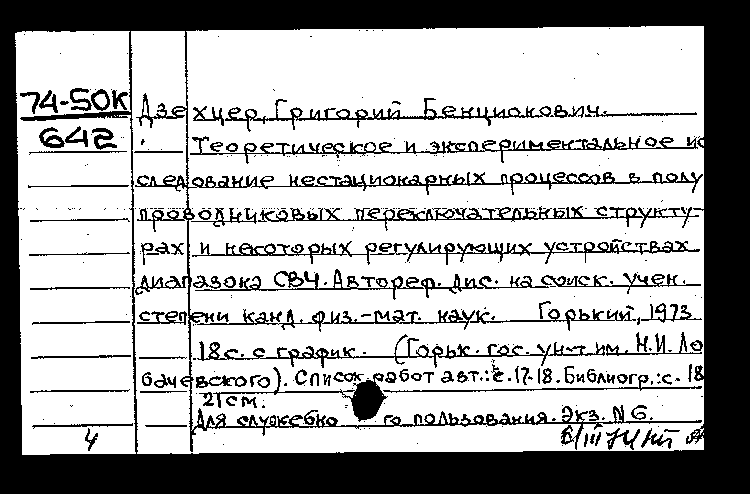 74-50к Дзехцер, Григорий Бенционович.
642 Теоретическое и экспериментальное ис
следование нестационарных процессов в полу
проводниковых переключательных структу-
рах и некоторых регулирующих устройствах
диапазона СВЧ. Автореф. дис. на соиск. учен.
степени канд. физ.-мат. наук. Горький, 1973
18 с. с график. (Горьк. гос. ун-т им. Н.И. Ло
бачевского). Список работ авт.: с. 17-18. Библиогр.: с. 18
21 см.
Для служебного пользования. Экз. N 6.
4